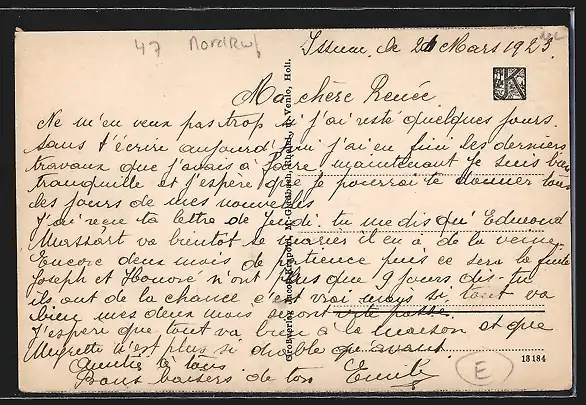 47 Nordruf
Issum, de 21 Mars 1923.
K
Ma chère Renée
Ne m'en veux pas trop si j'ai resté quelques jours
sans t'écrire aujourd'hui j'ai en fini les derniers
travaux que j'avais à faire, maintenant je suis bien
tranquille et j'espère que je pourrai te donner tous
les jours de mes nouvelles
J'ai reçu ta lettre de Jeudi. tu me dis qu'Edmond
va bientôt se marier il en a de la veine.
Encore deux mois de patience puis ce sera la fuite
Joseph et Honoré n'ont plus que 9 jours dis-tu
ils ont de la chance c'est vrai mais si tout va
bien mes deux mois seront vite passé.
J'espère que tout va bien à la maison et que
Mugrette n'est plus si diable qu'avant
Amitiés à tous
Bons baisers de ton Emile
Grossverlag Jacob Krapohl, M.Gladbach, Rheydt, u. Venlo, Holl.
13184
E